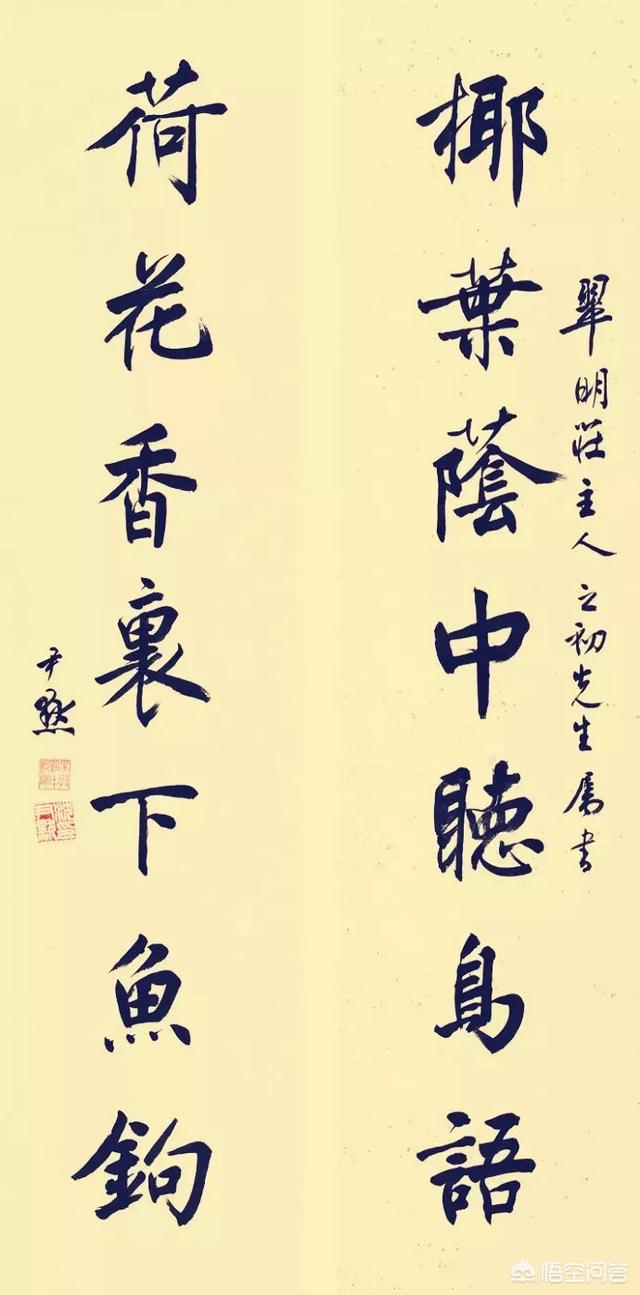 翠明莊主人之初先生属書
椰葉蔭中聽鳥語
荷花香裏下魚鉤
尹默
悟空问答